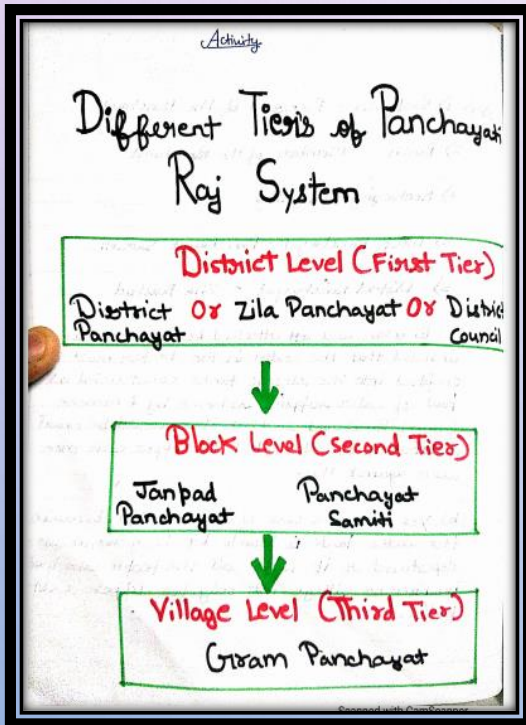 Activity
Different Tier's of Panchayati
Raj System
District Level (First Tier)
District Or Zila Panchayat Or District
Panchayat Council
Block Level (Second Tier)
Janpad Panchayat
Panchayat Samiti
Village Level (Third Tier)
Gram Panchayat
Scanned with CamScanner